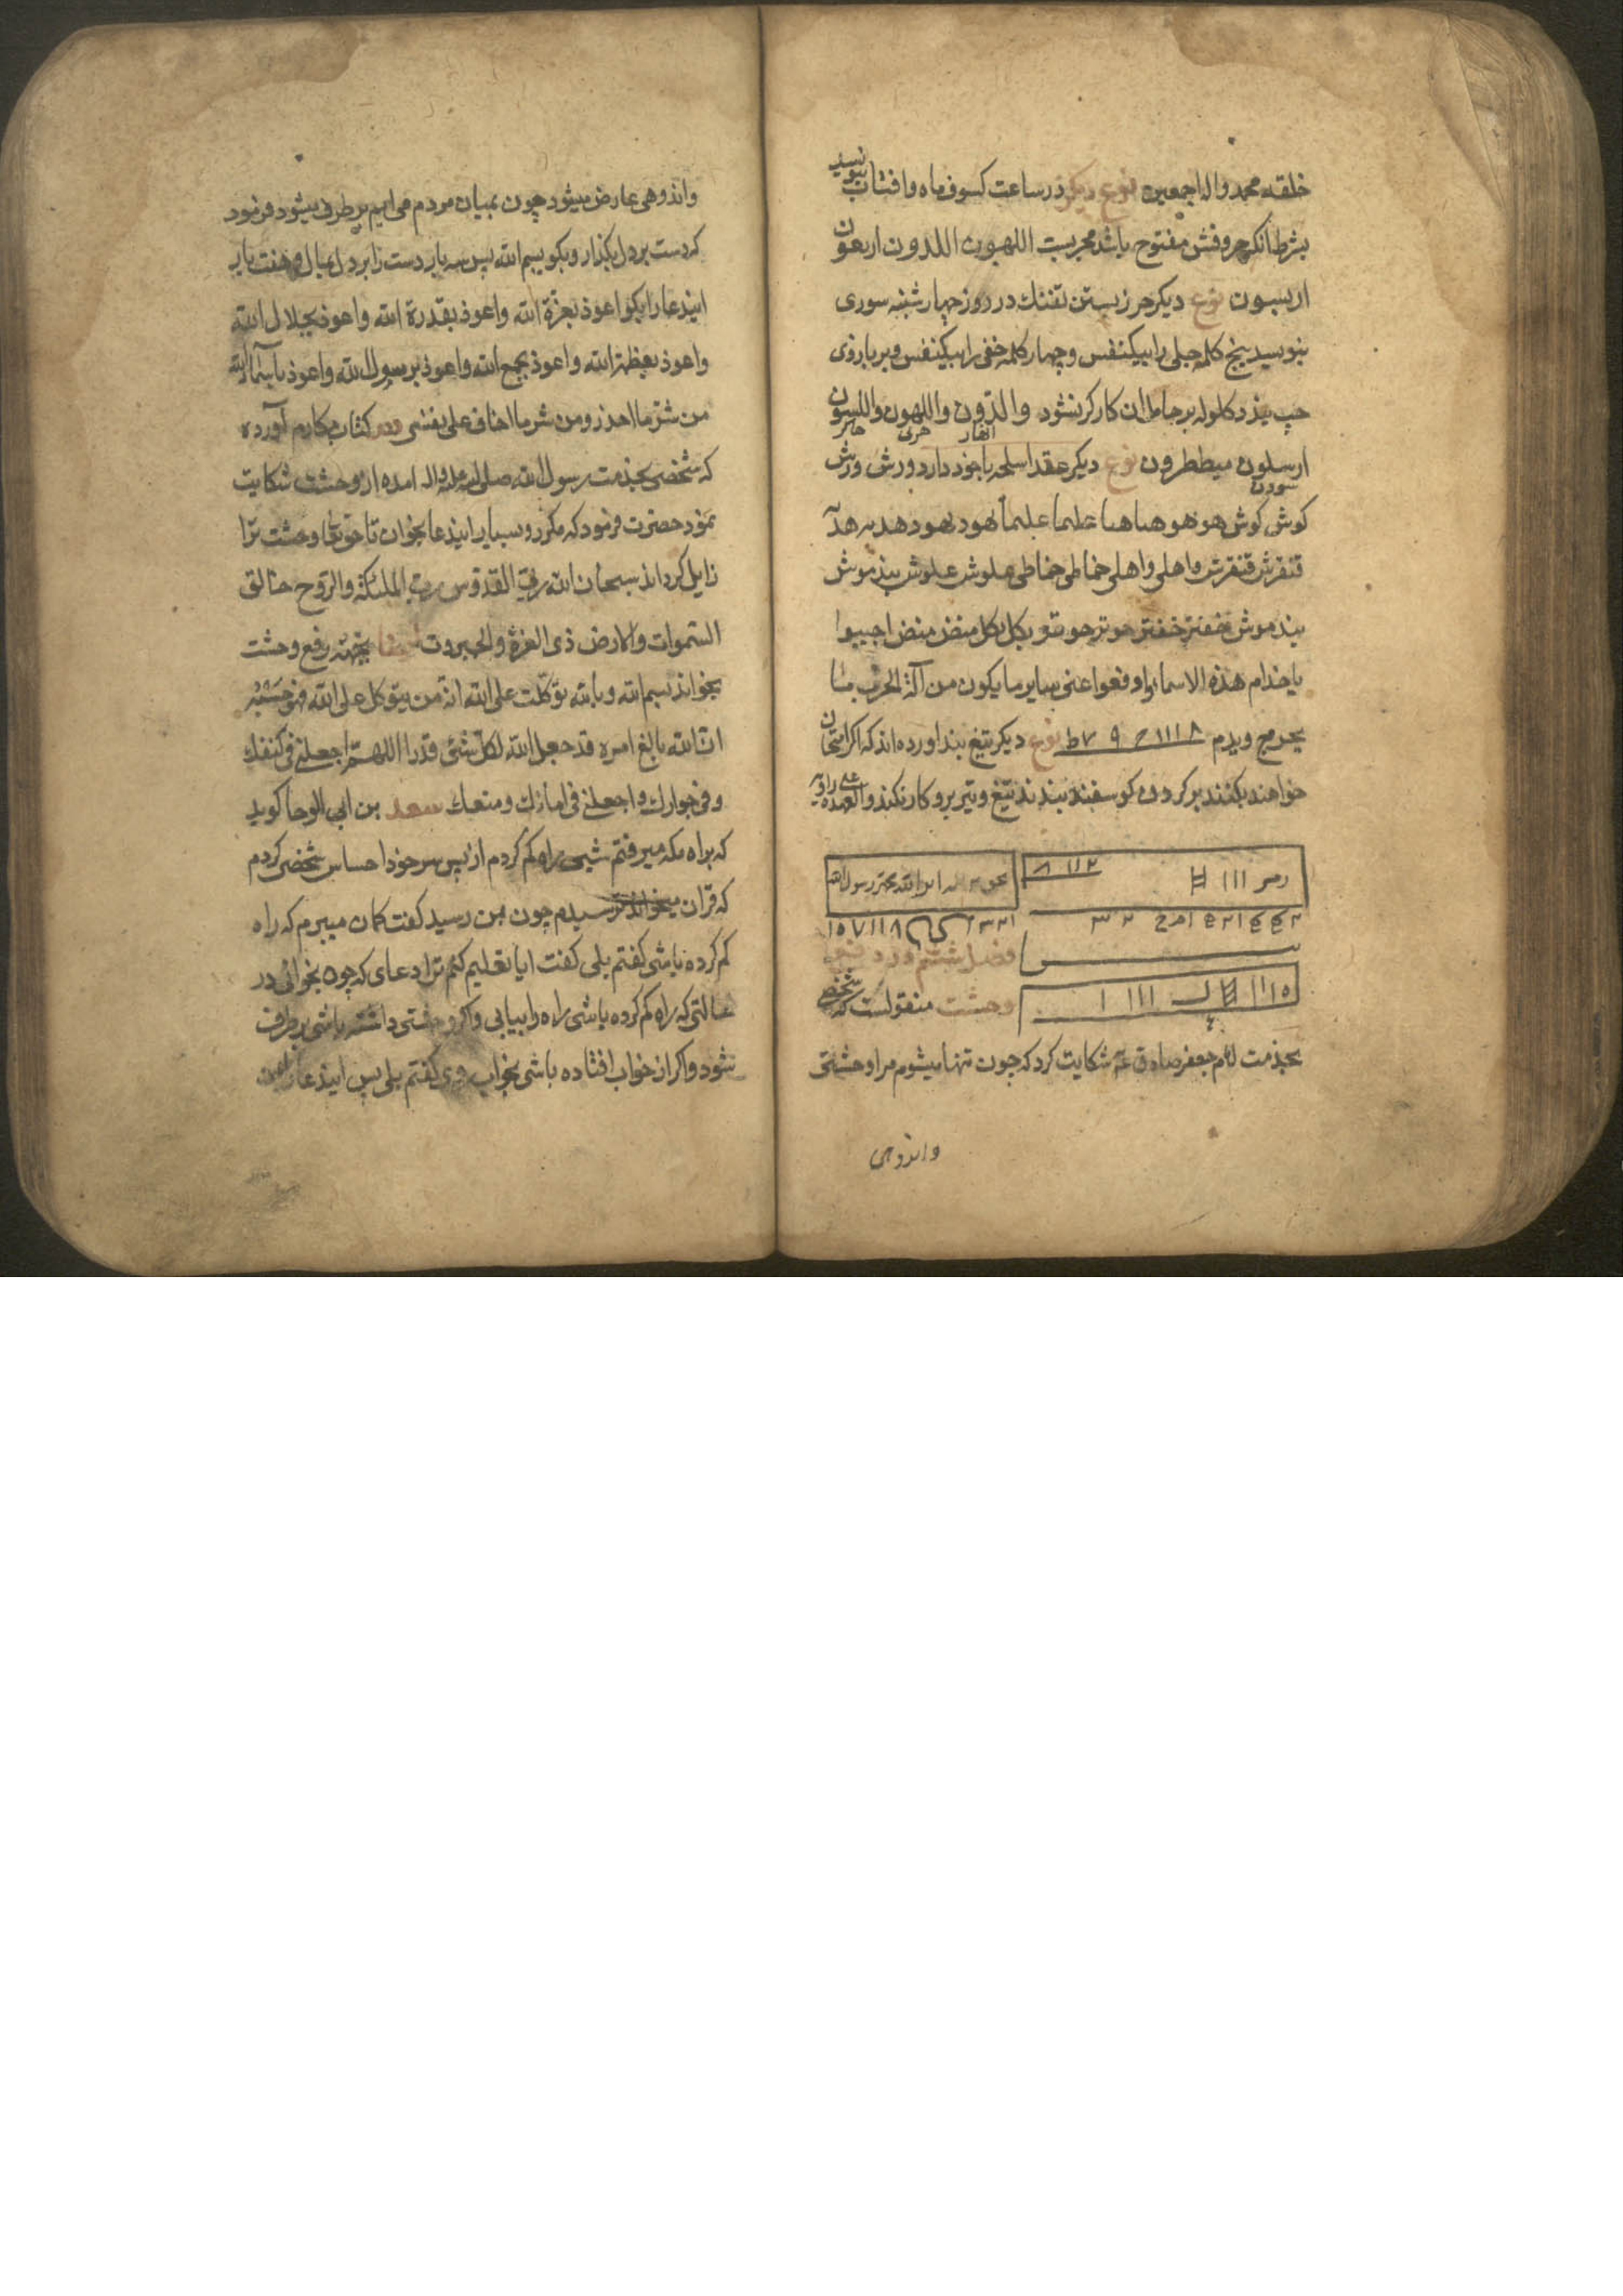 خلقه محمد واله اجمعین نوع دیکر در ساعت کسوف ماه و افتاب بنویسد
بشرط انکه حروفش مفتوح باشد مجربست اللهون اللدون اربعون
اربسون نوع دیکر حرز بستن تفنك در روز چهارشنبه سوری
بنویسد پنج کلمه جلی را بیکنفس و چهار کلمه خفی را بیکنفس و بر بازوی
چپ بندد کلوله بر حامل ان کارکر نشود والدون واللهون واللسون
ارسلون میططرون نوع دیکر عقد اسلحه باخود دارد ورش ورش
کوش کوش هو هو هیا هیا علیما علیما یهود یهود هد به هد
قنقرش قنقرش واهلی واهلی خماطی خماطی علوش علوش بند موش
بند موش خفتر خفتر حوتر حوتر بکل بکل منض منض اجیبوا
یا خدام هذه الاسماء وادفعوا عنی سایر ما یکون من آلة الحرب مما
یجرح ویدم ۱۱۱۸ ۹ ۷ط نوع دیکر تیغ بند اورده اند که اکر امتحان
خواهند بکنند بر کردن کوسفند بندند تیغ و تیر برو کار نکند والعهده علی راویه
فصل ششم در دفع
وحشت منقولست که شخصی
بخدمت امام جعفر صادق ع شکایت کرد که چون تنها میشوم مرا وحشتی
واندوهی
واندوهی عارض میشود چون بمیان مردم می ایم بر طرف میشود فرمود
که دست بر دل بکذار و بکو بسم الله پس سه بار دست را بر دل بمال و هفت بار
ایندعا را بکو اعوذ بعزة الله واعوذ بقدرة الله واعوذ بجلال الله
واعوذ بعظمة الله واعوذ بجمع الله واعوذ برسول الله واعوذ باسماء الله
من شر ما احذر ومن شر ما اخاف علی نفسی ودر کتاب مکارم آورده
که شخصی بخدمت رسول الله صلی الله علیه واله امده از وحشت شکایت
نمود حضرت فرمود که مکرر و بسیار ایندعا بخوان تا حق تعالی وحشت ترا
زایل کرداند سبحان الله ربی القدوس رب الملئکة والروح خالق
السموات والارض ذی العزة والجبروت ایضا بجهته رفع وحشت
بخواند بسم الله وبالله توکلت علی الله انه من یتوکل علی الله فهو حسبه
ان الله بالغ امره قد جعل الله لکل شئ قدرا اللهم اجعلنی فی کنفك
وفی جوارك واجعلنی فی امانك ومنعك سعد بن ابی الوحا کوید
که براه مکه میرفتم شبی راه کم کردم از پس سر خود احساس شخصی کردم
که قران میخواند ترسیدم چون بمن رسید کفت کمان میبرم که راه
کم کرده باشی کفتم بلی کفت ایا تعلیم کنم ترا دعای که چون بخوانی در
حالتی که راه کم کرده باشی راه را بیابی واکر وحشتی داشته باشی بر طرف
شود واکر از خواب افتاده باشی بخواب روی کفتم بلی پس ایندعا